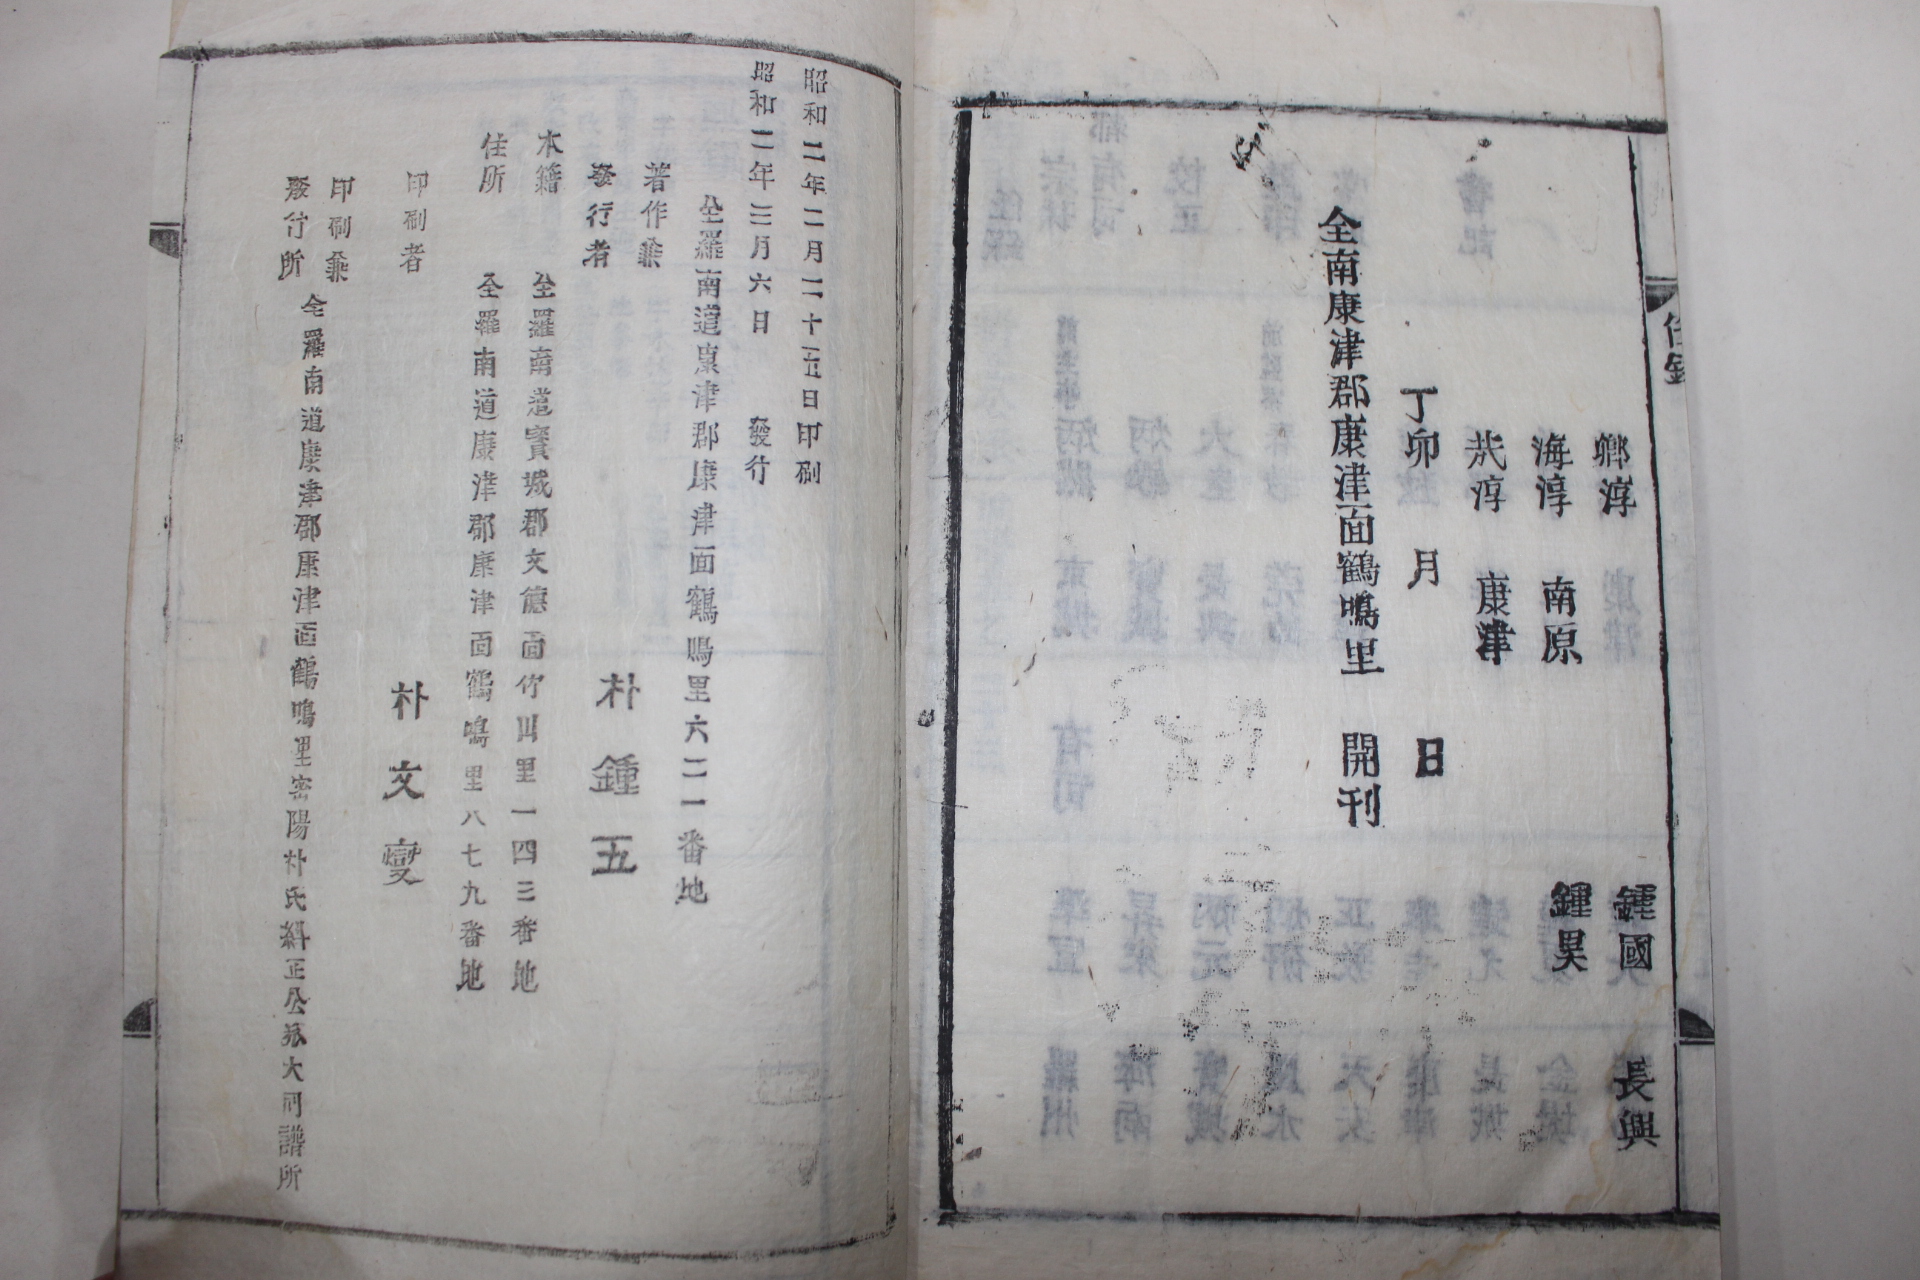 任錄
鄉淳
鍾國 長興
海淳 南原
鍾昊
淳 康津
丁卯 月 日
全南康津郡康津面鶴鳴里 開刊
昭和二年二月二十五日印刷
昭和二年三月六日 發行
全羅南道康津郡康津面鶴鳴里六二一番地
著作兼
發行者 朴鍾五
本籍 全羅南道寶城郡文德面竹山里一四三番地
住所 全羅南道康津郡康津面鶴鳴里八七九番地
印刷者 朴文燮
印刷兼
發行所 全羅南道康津郡康津面鶴鳴里密陽朴氏糾正公派大同譜所